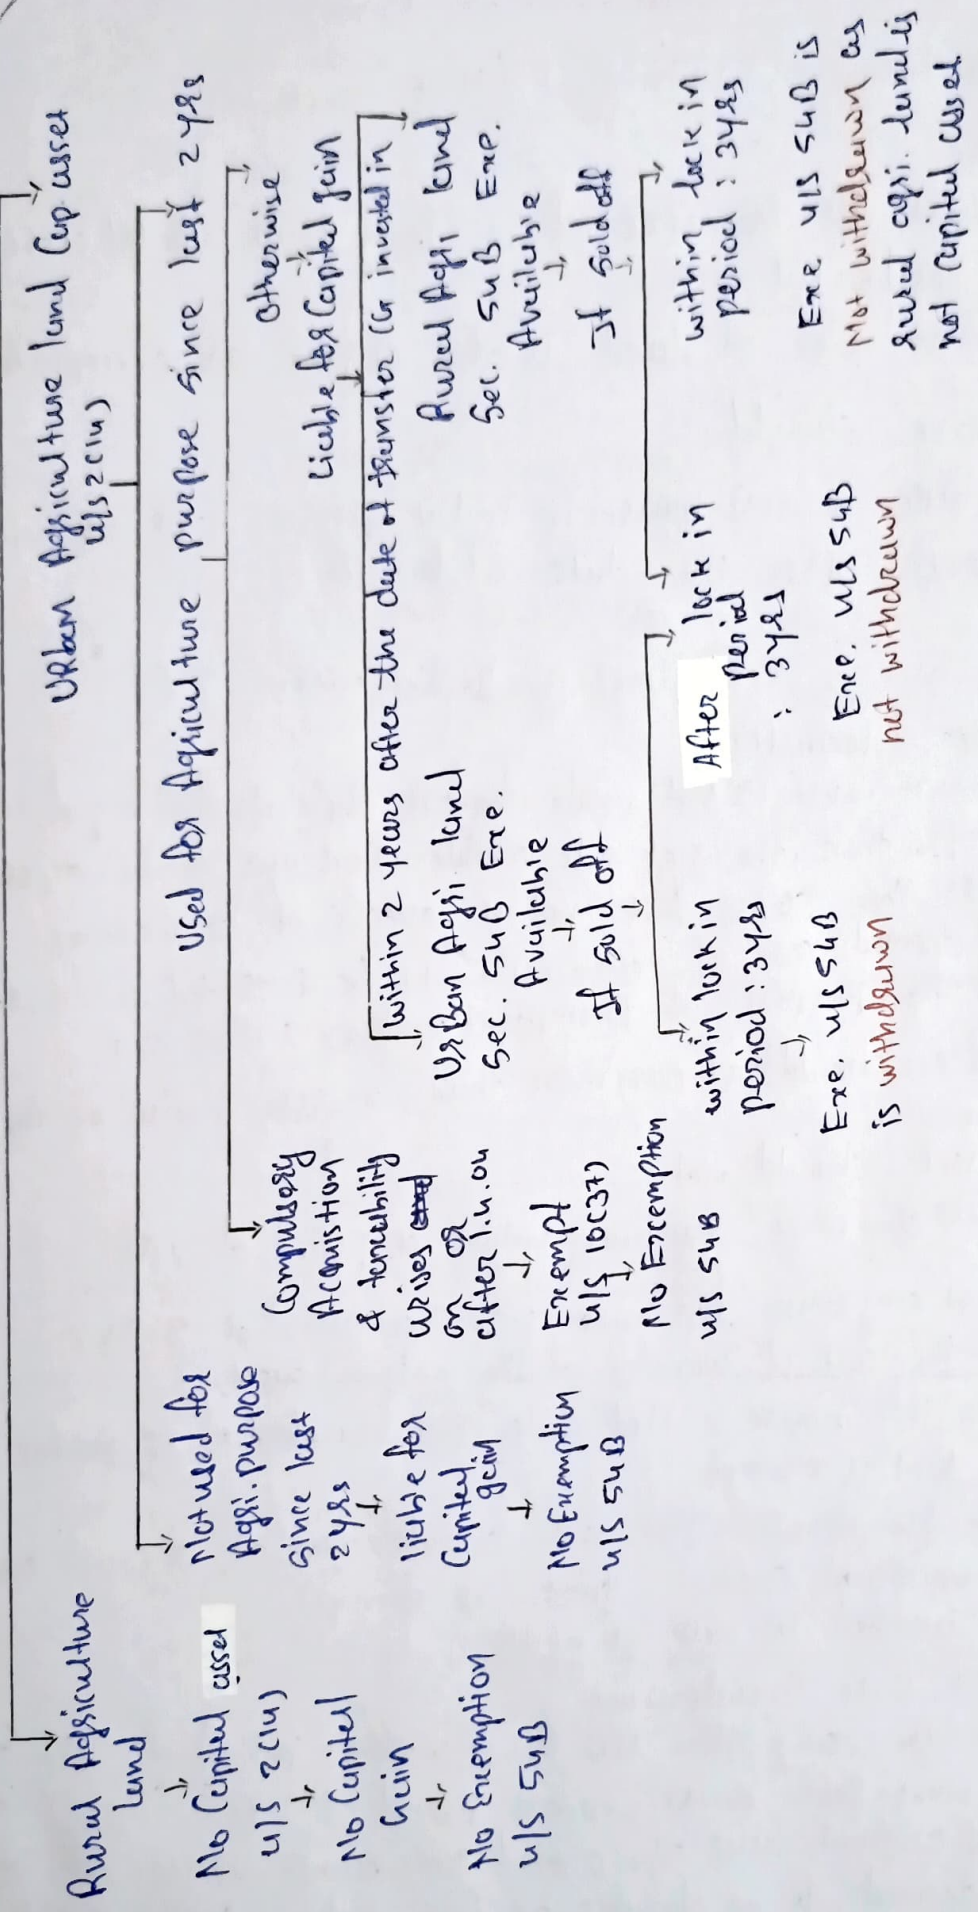 Rural Agriculture
land
No Capital asset
u/s 2(14)
No Capital
Gain
No Exemption
u/s 54B
Urban Agriculture land Cap asset
u/s 2(14)
Not used for
Agri. purpose
since last
2 yrs
liable for
Capital
gain
No Exemption
u/s 54B
Used for Agriculture purpose since last 2 yrs
Compulsory
Acquistion
& tenability
arises
on or
after 1.4.04
Exempt
u/s 10(37)
No Excemption
u/s 54B
Otherwise
Liable for Capital gain
within 2 years after the date of transfer CG invested in
Urban Agri land
Sec. 54B Exe.
Available
If sold off
within lock in
period : 3 yrs
Exe. u/s 54B
is withdrawn
After lock in
period
: 3 yrs
Exe. u/s 54B
not withdrawn
Rural Agri land
Sec. 54B Exe.
Available
If sold off
within lock in
period : 3 yrs
Exe u/s 54B is
Not withdrawn as
rural agri. land is
not capital asset